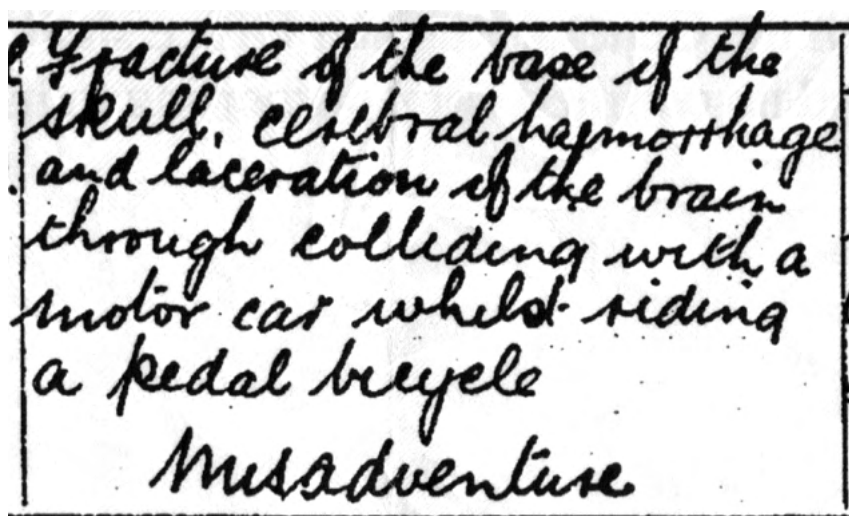 Fracture of the base of the
skull, cerebral haemorrhage
and laceration of the brain
through colliding with a
motor car whilst riding
a pedal bicycle
Misadventure